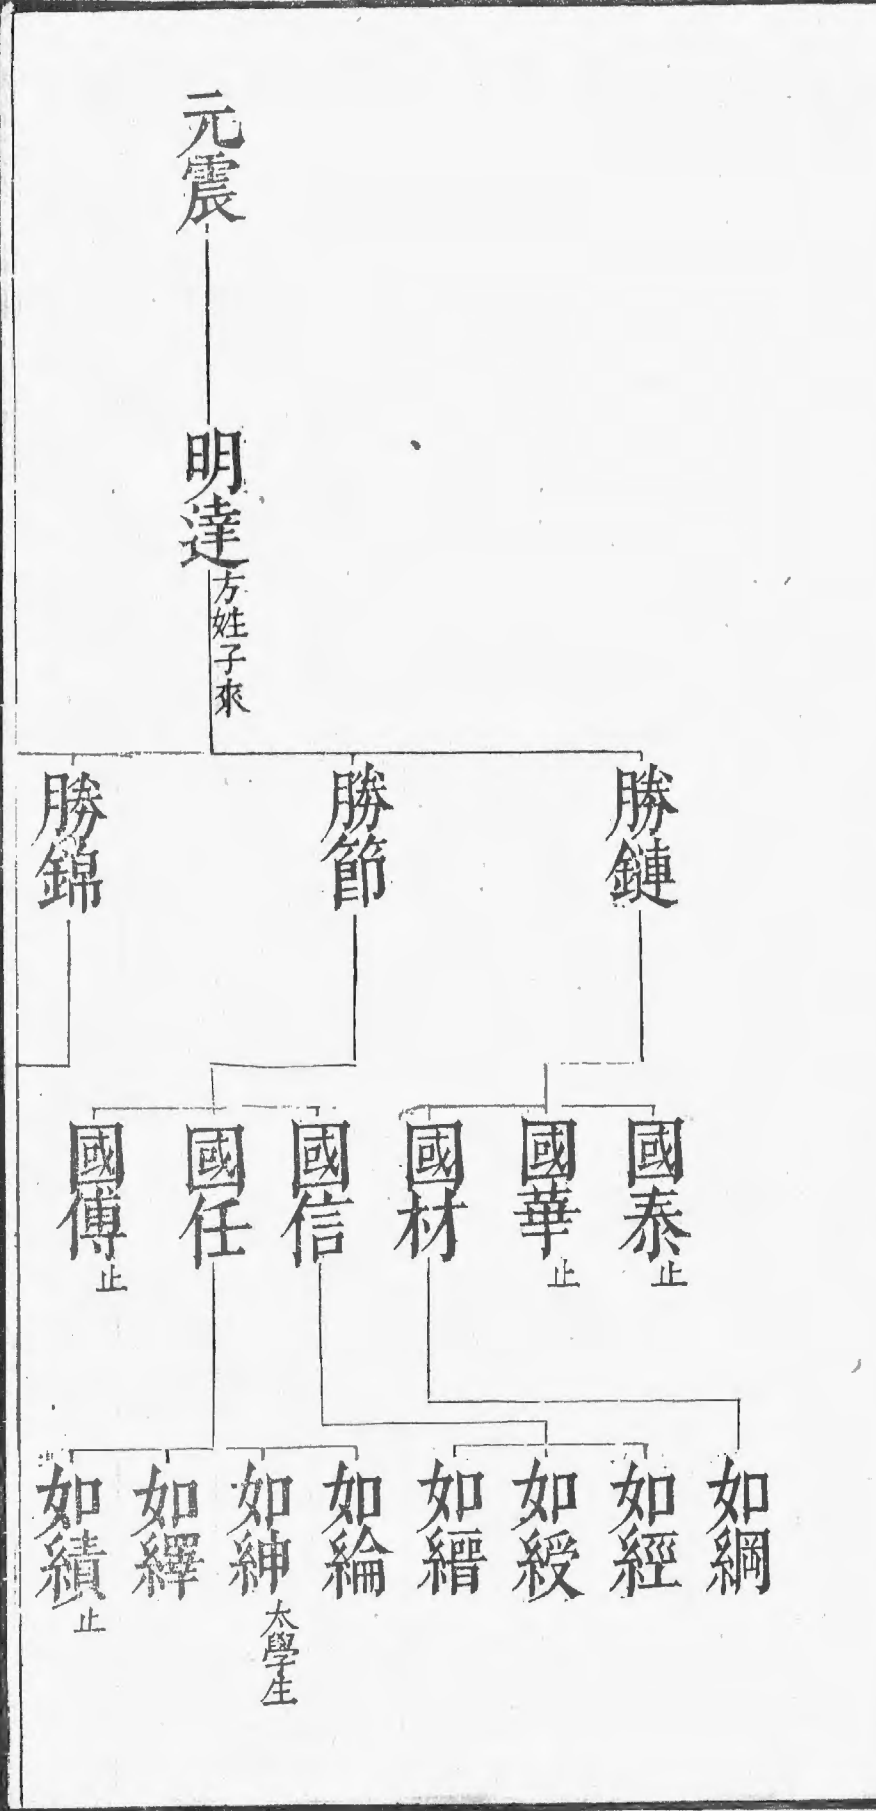 元震
明達
方姓子來
勝鏈
勝節
勝錦
國泰
止
國華
止
國材
國信
國任
國傅
止
如綱
如經
如綬
如縉
如綸
如紳
太學生
如繹
如績
止